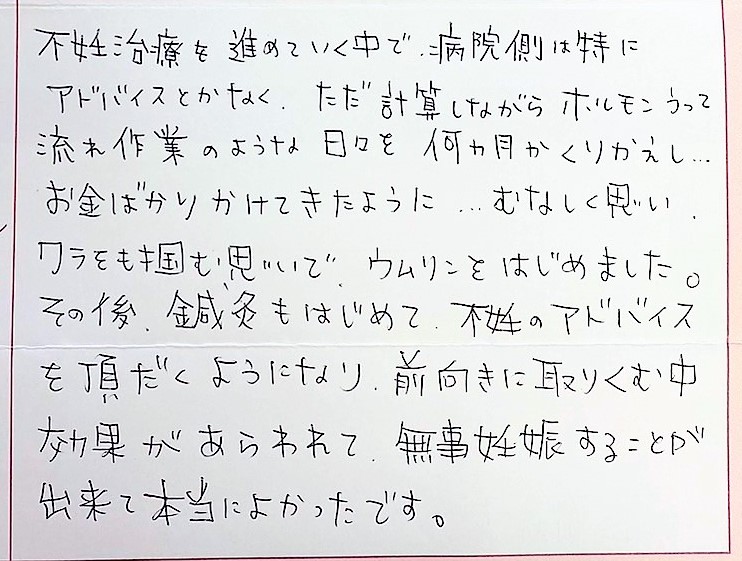 不妊治療を進めていく中で、病院側は特に
アドバイスとかなく、ただ計算しながらホルモンうって
流れ作業のような日々を何カ月かくりかえし…
お金ばかりかけてきたように…むなしく思い、
ワラをも掴む思いで、ウムリンをはじめました。
その後、鍼灸もはじめて、不妊のアドバイス
を頂だくようになり、前向きに取りくむ中
効果があらわれて、無事妊娠することが
出来て本当によかったです。